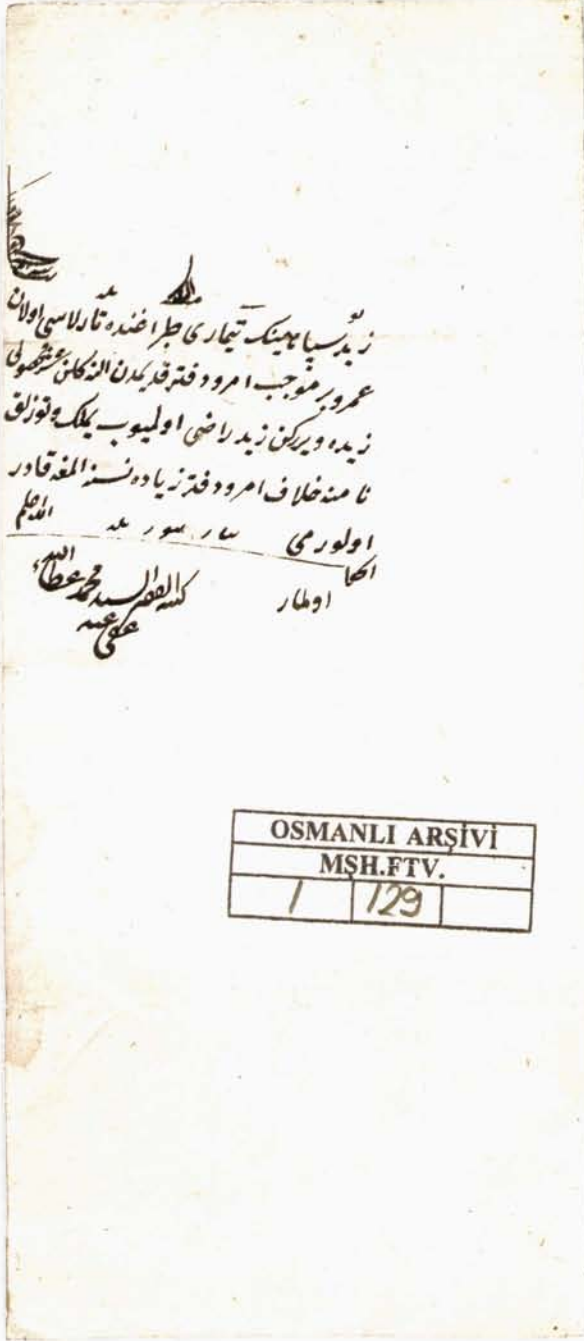 زيد سپاهينك تيمارى طپراغنده تارلاسى اولان
عمرو بر موجب امر و دفتر قديمدن النه كلن عشر محصولى
زيده ويرركن زيد راضى اولميوب يملك و توزلق
نامنه خلاف امر و دفتر زياده نسنه المغه قادر
اولورمى الله اعلم
الجواب
اولماز
كتبه الفقير السيد محمد عطاء الله
عفى عنه
OSMANLI ARŞİVİ
MŞH.FTV.
1 129